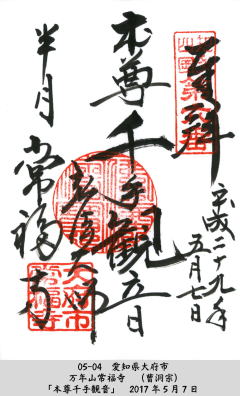 奉拝
平成二十九年
五月七日
本尊千手観音
半月
常福寺
大府市
05-04 愛知県大府市
万年山常福寺 (曹洞宗)
「本尊千手観音」 2017年5月7日